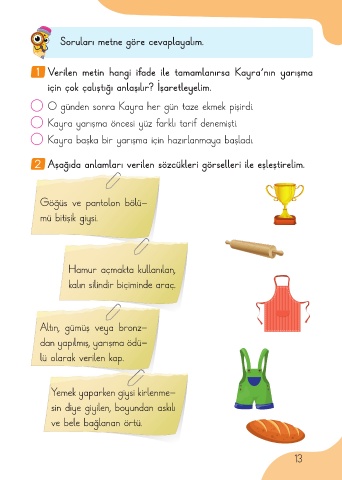 Soruları metne göre cevaplayalım.
1 Verilen metin hangi ifade ile tamamlanırsa Kayra'nın yarışma
için çok çalıştığı anlaşılır? İşaretleyelim.
O günden sonra Kayra her gün taze ekmek pişirdi.
Kayra yarışma öncesi yüz farklı tarif denemişti.
Kayra başka bir yarışma için hazırlanmaya başladı.
2 Aşağıda anlamları verilen sözcükleri görselleri ile eşleştirelim.
Göğüs ve pantolon bölü-
mü bitişik giysi.
Hamur açmakta kullanılan,
kalın silindir biçiminde araç.
Altın, gümüş veya bronz-
dan yapılmış, yarışma ödü-
lü olarak verilen kap.
Yemek yaparken giysi kirlenme-
sin diye giyilen, boyundan askılı
ve bele bağlanan örtü.
13